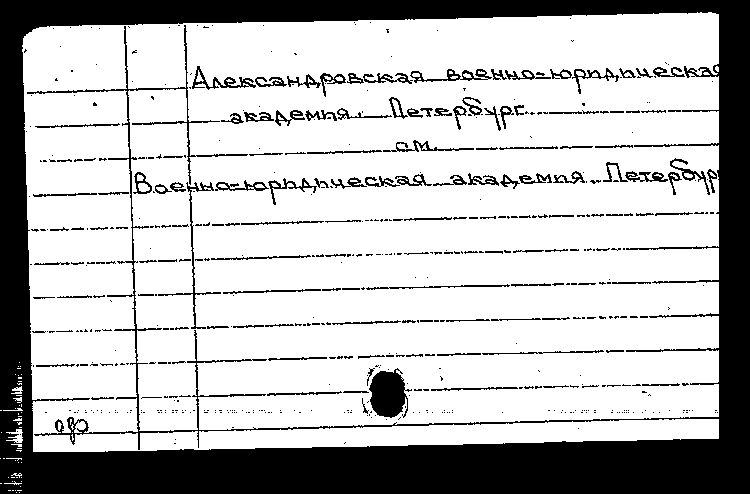 Александровская военно-юридическая
академия. Петербург.
см.
Военно-юридическая академия. Петербург